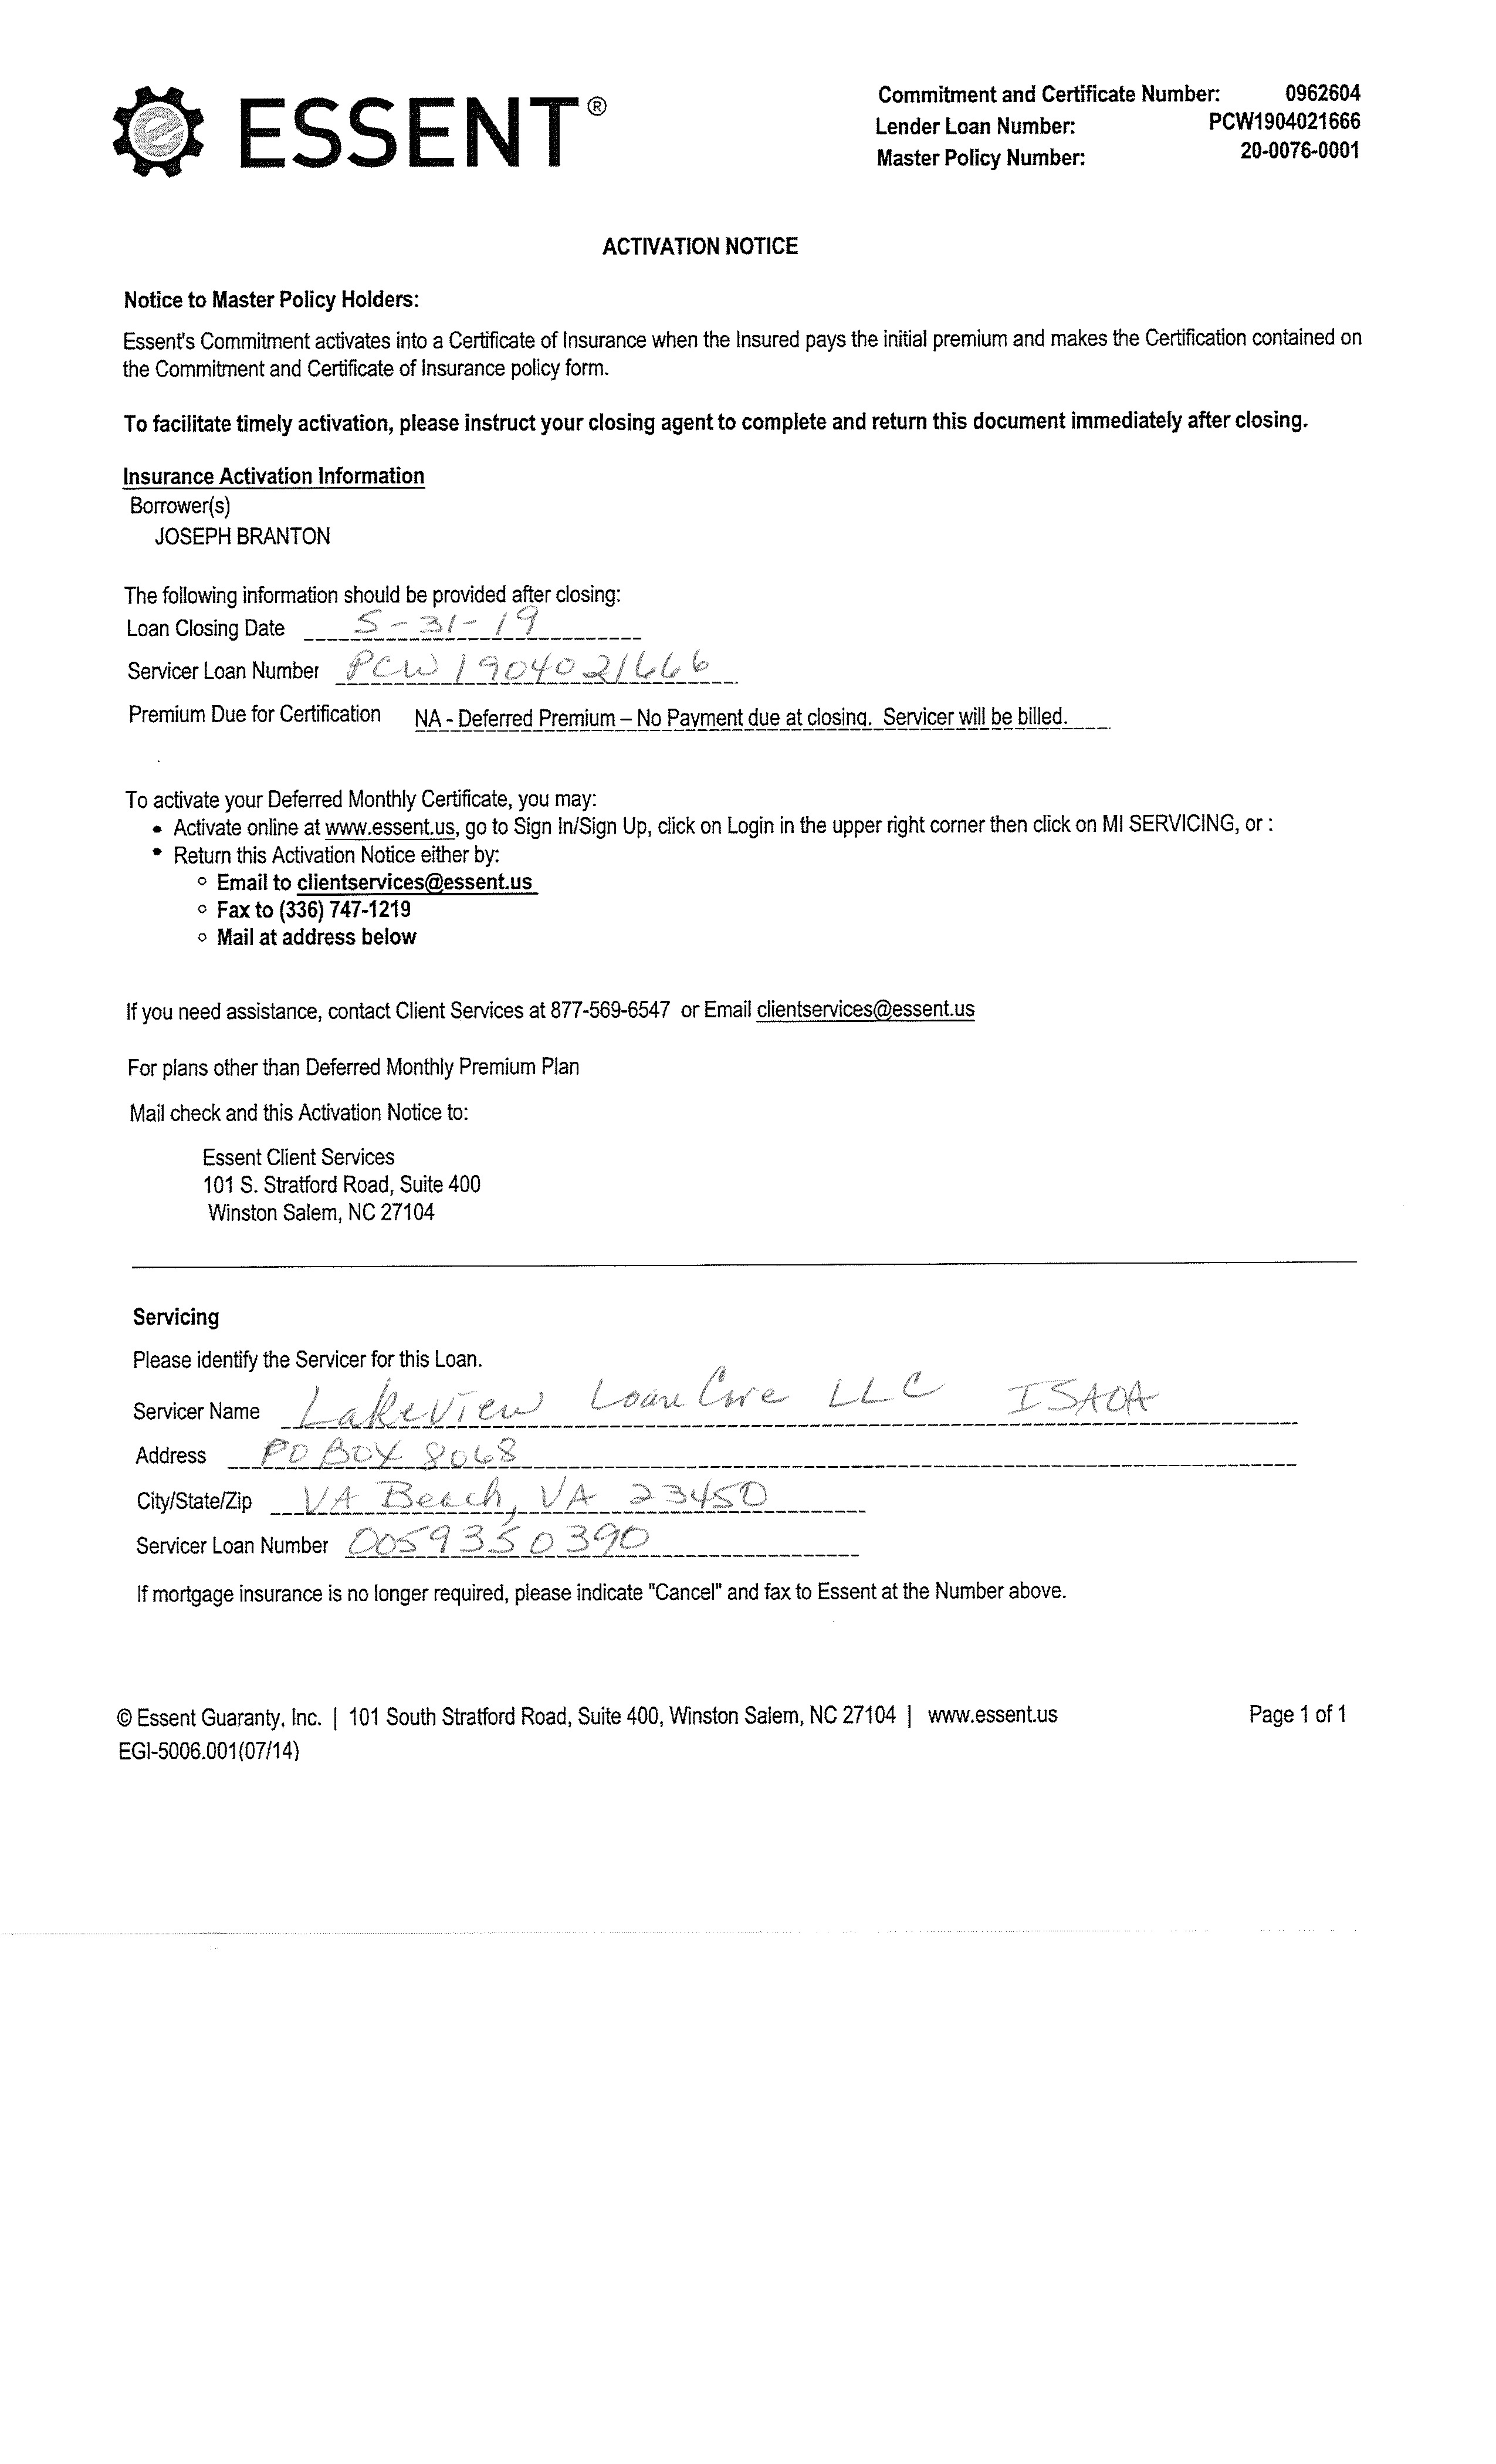 ESSENT®
Commitment and Certificate Number: 0962604
Lender Loan Number: PCW1904021666
Master Policy Number: 20-0076-0001
ACTIVATION NOTICE
Notice to Master Policy Holders:
Essent's Commitment activates into a Certificate of Insurance when the Insured pays the initial premium and makes the Certification contained on
the Commitment and Certificate of Insurance policy form.
To facilitate timely activation, please instruct your closing agent to complete and return this document immediately after closing.
Insurance Activation Information
Borrower(s)
JOSEPH BRANTON
The following information should be provided after closing:
Loan Closing Date 5-31-19
Servicer Loan Number PCW1904021666
Premium Due for Certification NA - Deferred Premium – No Payment due at closing. Servicer will be billed.
To activate your Deferred Monthly Certificate, you may:
• Activate online at www.essent.us, go to Sign In/Sign Up, click on Login in the upper right corner then click on MI SERVICING, or :
• Return this Activation Notice either by:
○ Email to clientservices@essent.us
○ Fax to (336) 747-1219
○ Mail at address below
If you need assistance, contact Client Services at 877-569-6547 or Email clientservices@essent.us
For plans other than Deferred Monthly Premium Plan
Mail check and this Activation Notice to:
Essent Client Services
101 S. Stratford Road, Suite 400
Winston Salem, NC 27104
Servicing
Please identify the Servicer for this Loan.
Servicer Name Lakeview Loan Care LLC ISAOA
Address PO BOX 8068
City/State/Zip VA Beach, VA 23450
Servicer Loan Number 0059350390
If mortgage insurance is no longer required, please indicate "Cancel" and fax to Essent at the Number above.
© Essent Guaranty, Inc. | 101 South Stratford Road, Suite 400, Winston Salem, NC 27104 | www.essent.us Page 1 of 1
EGI-5006.001(07/14)